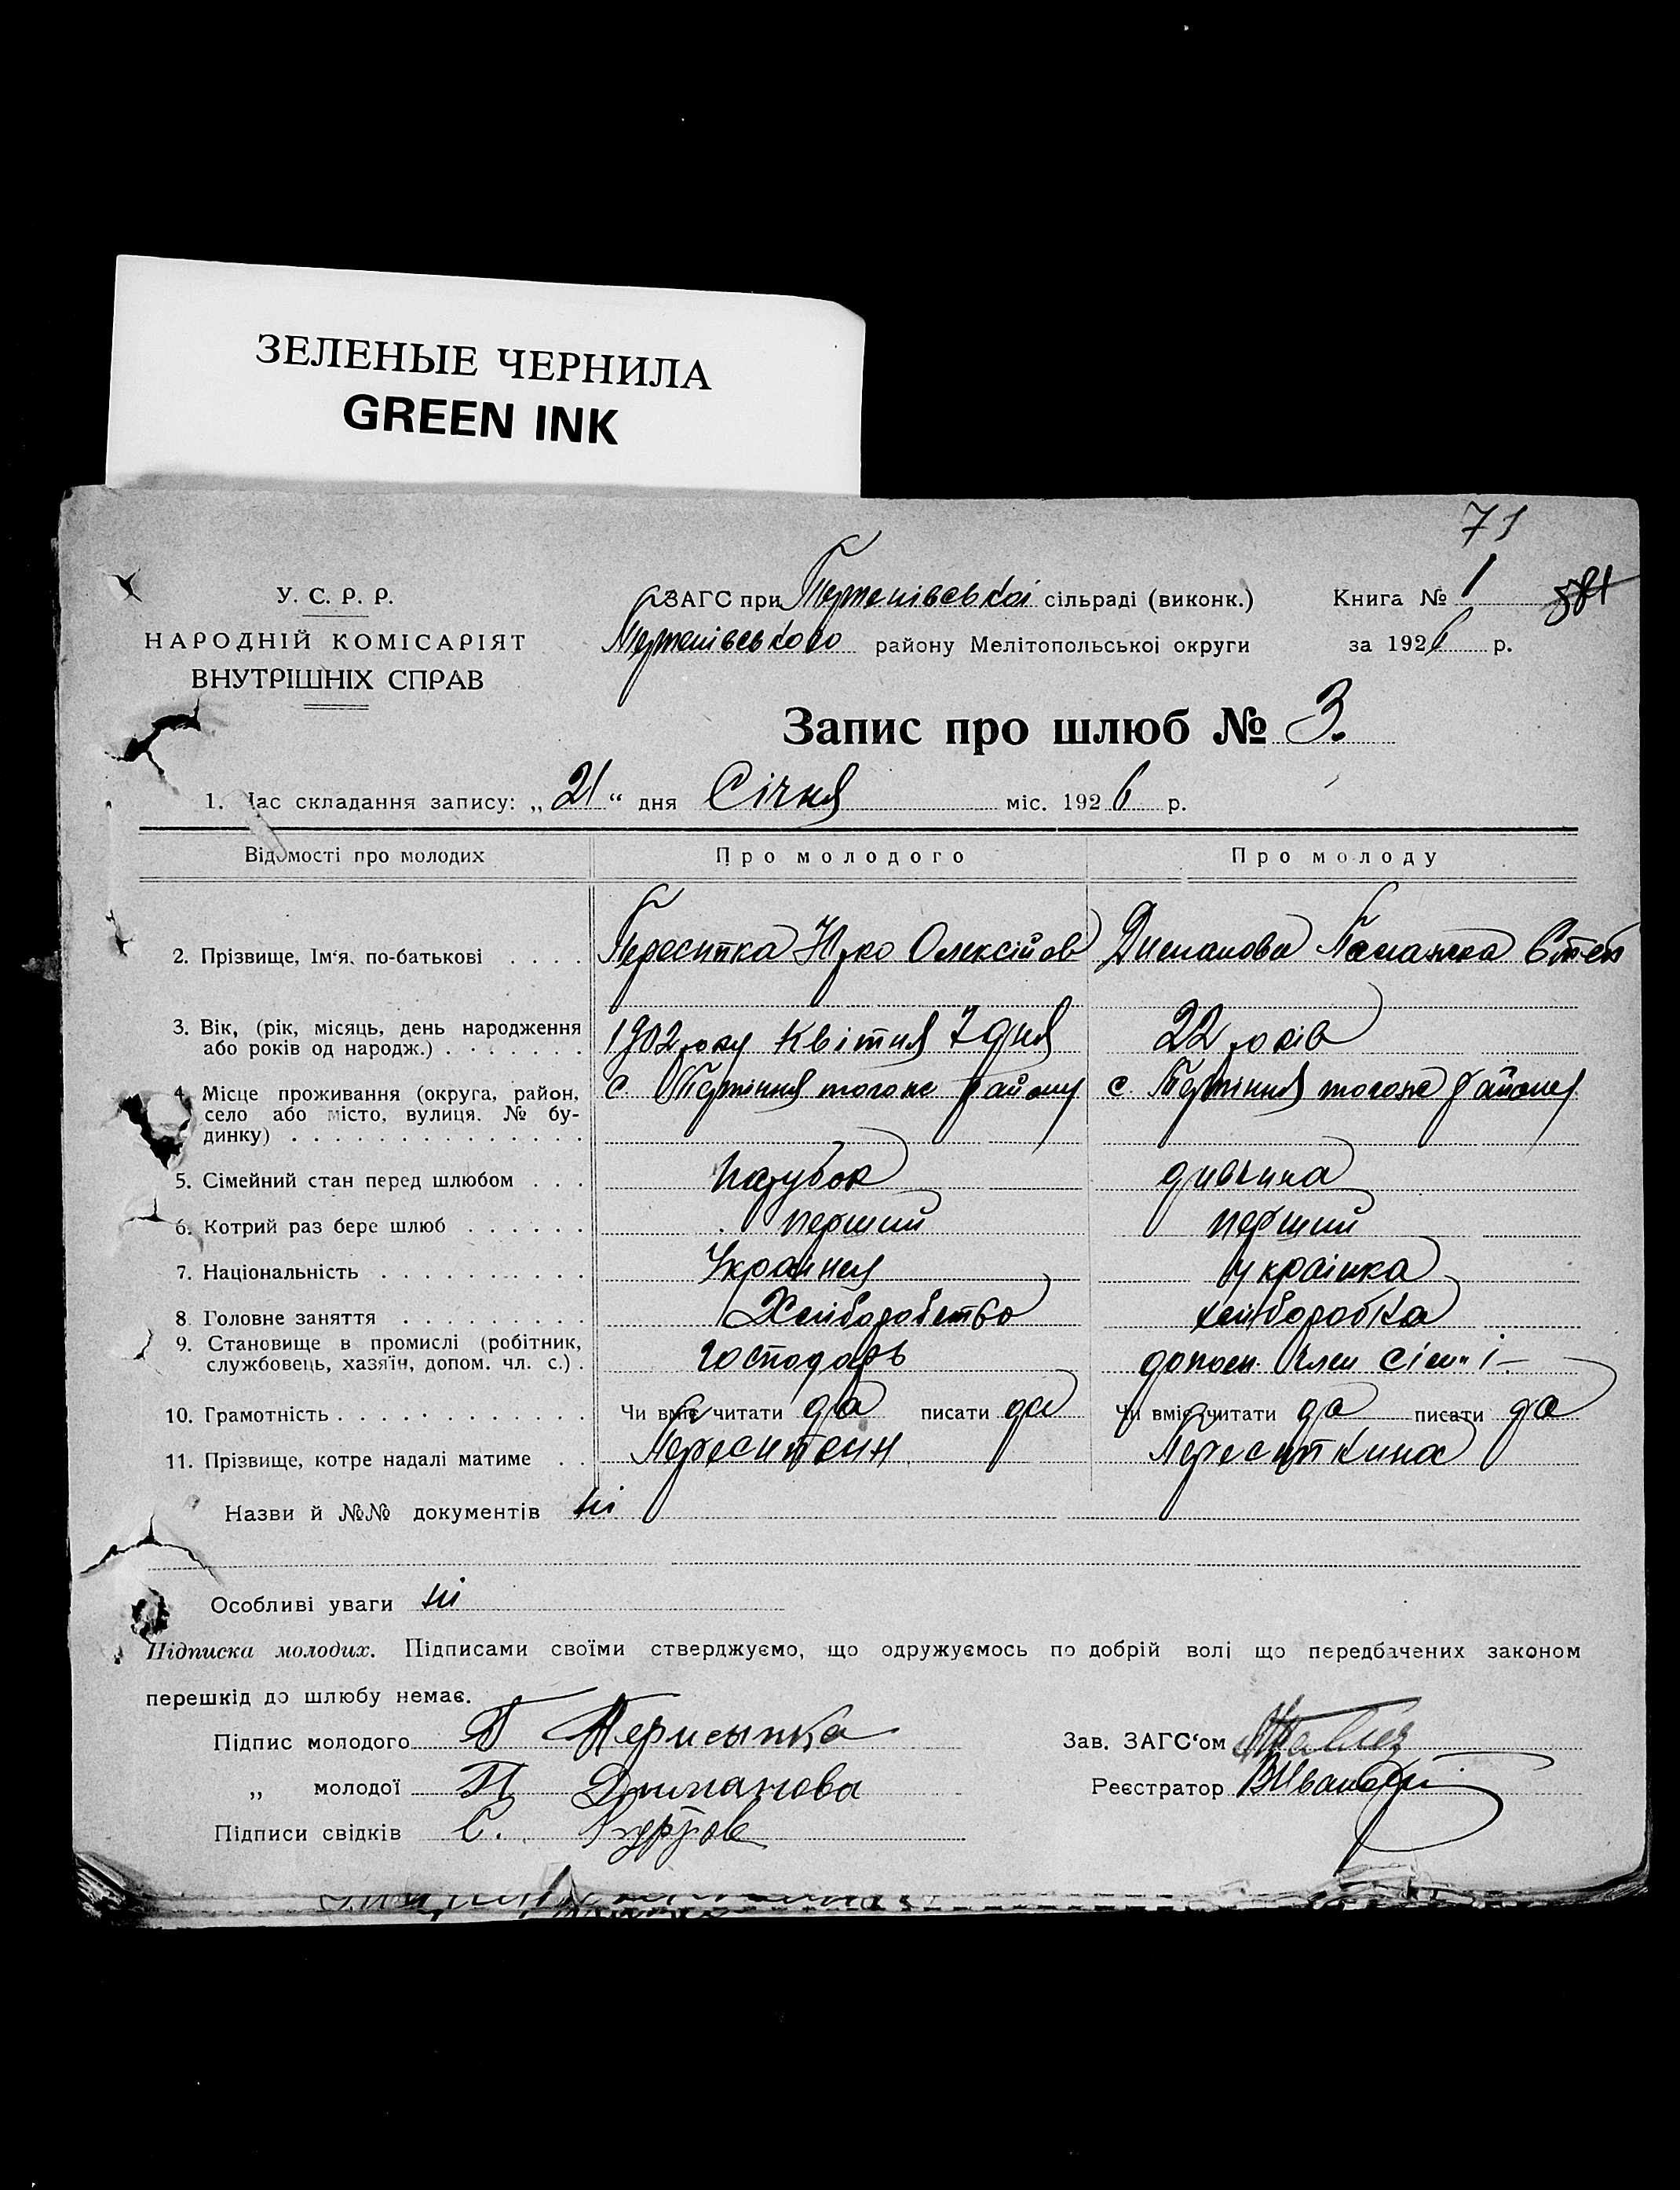 ЗЕЛЕНЫЕ ЧЕРНИЛА
GREEN INK
71
У. С. Р. Р.
НАРОДНІЙ КОМІСАРІЯТ
ВНУТРІШНІХ СПРАВ
ЗАГС при Терпенівськоі сільраді (виконк.)
Терпенівського району Мелітопольськоі округи
Книга № 1
за 1926 р.
Запис про шлюб № 3.
1. Час складання запису: „21“ дня Січня міс. 1926 р.
Відомості про молодих Про молодого Про молоду
2. Прізвище, Ім‘я, по-батькові . . . . Пересипка Юрко Олексійов Диманова Степ
3. Вік, (рік, місяць, день народження 1902 року квітня 7 дня 22 років
або років од народж.) . . . . . . .
4. Місце проживання (округа, район, с. Терпіння того же району с. Терпіння тогоже району
село або місто, вулиця. № бу-
динку) . . . . . . . . . . . . . .
5. Сімейний стан перед шлюбом . . . парубок дивчина
6. Котрий раз бере шлюб . . . . . . перший перший
7. Національність . . . . . . . . . . украінка
8. Головне заняття . . . . . . . . . Хлиборобство хлиборобка
9. Становище в промислі (робітник, господарь допом. член сімьі
службовець, хазяїн, допом. чл. с.) .
10. Грамотність . . . . . . . . . . . . Чи вміє читати да писати да Чи вміє читати да писати да
11. Прізвище, котре надалі матиме . . Пересипкин Пересипкина
Назви й №№ документів ні
Особливі уваги ні
Підписка молодих. Підписами своїми стверджуємо, що одружуємось по добрій волі що передбачених законом
перешкід до шлюбу немає.
Підпис молодого Перисыпка
„ молодої П Диманова
Підписи свідків С.
Зав. ЗАГС‘ом
Реєстратор